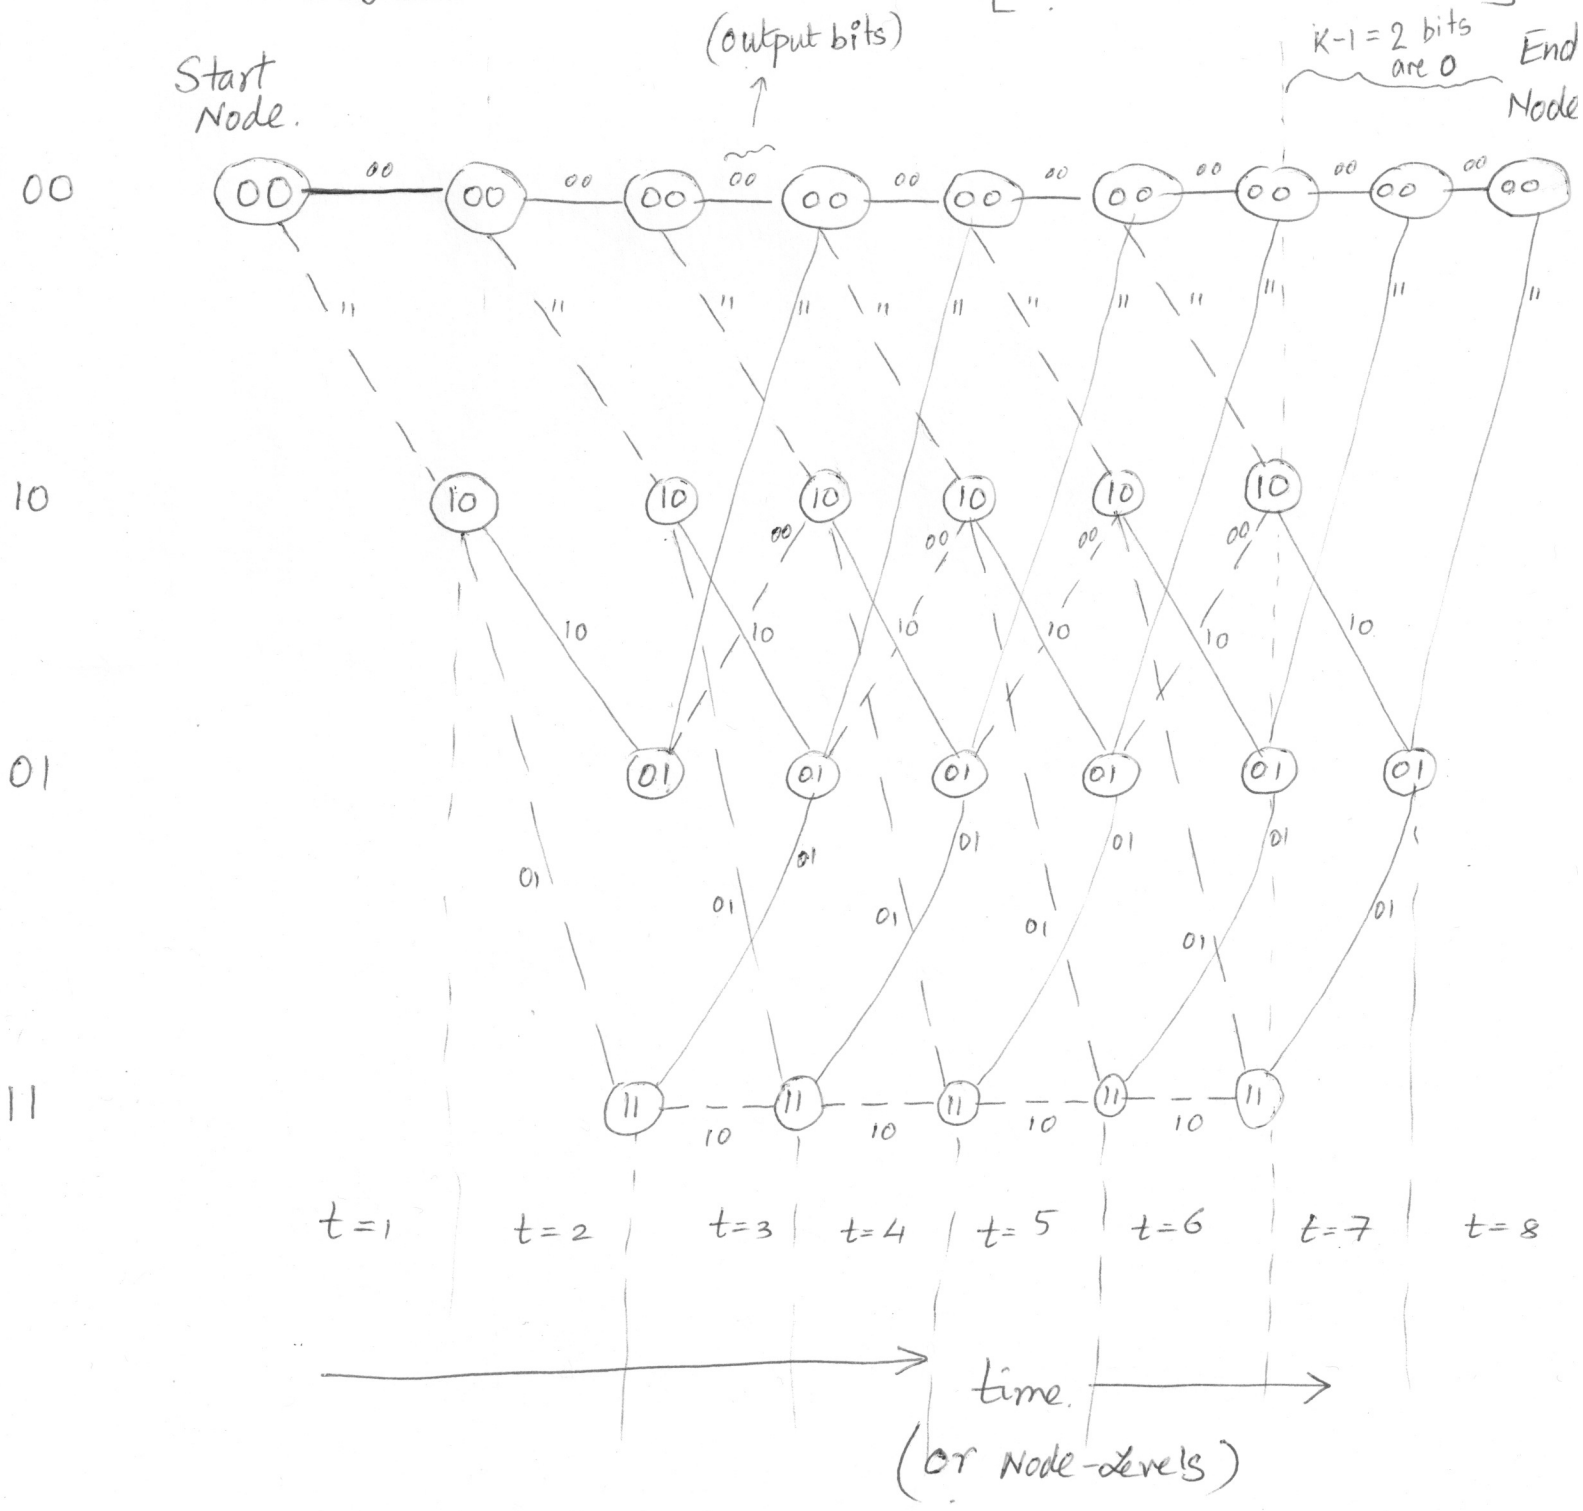 (output bits)
K-1=2 bits
are 0
End
Node
Start
Node.
00
00 00 00 00 00 00 00 00 00
00 00 00 00 00 00 00 00
11 11 11 11 11 11 11 11 11 11 11 11
10
10 10 10 10 10 10
00 00 00 00
10 10 10 10 10 10
01
01 01 01 01 01 01
01 01 01 01 01
01 01 01 01 01
11
11 11 11 11 11
10 10 10 10
t=1 t=2 t=3 t=4 t=5 t=6 t=7 t=8
time.
(or Node-Levels)